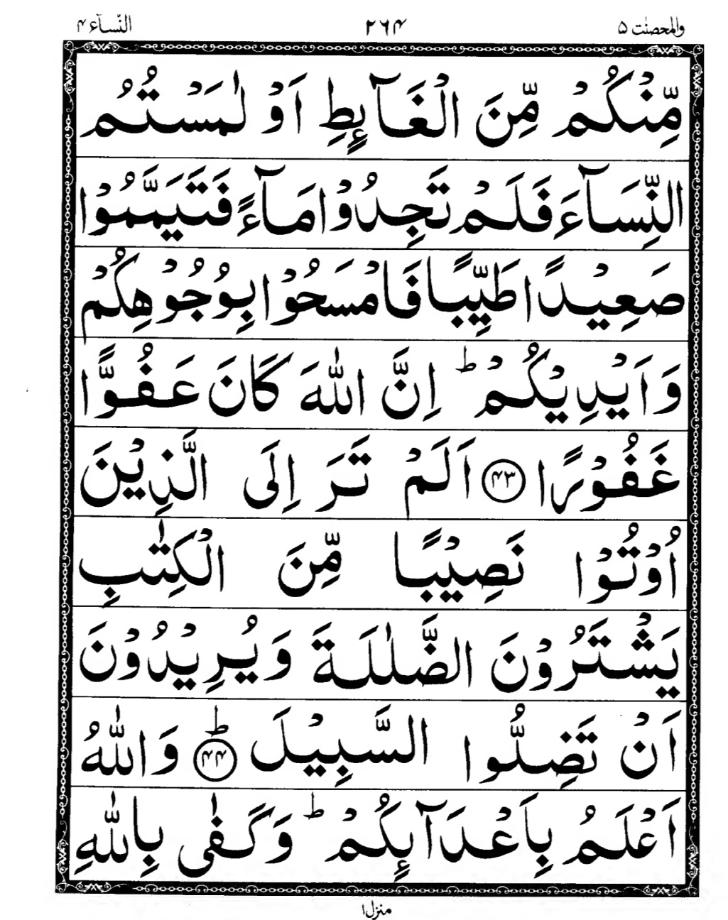 والمحصنٰت ۵ ۲۶۴ النّسآء ۴
مِّنْكُمْ مِّنَ الْغَآىِٕطِ اَوْ لٰمَسْتُمُ
النِّسَآءَ فَلَمْ تَجِدُوْا مَآءً فَتَيَمَّمُوْا
صَعِيْدًا طَيِّبًا فَامْسَحُوْا بِوُجُوْهِكُمْ
وَاَيْدِيْكُمْ ؕ اِنَّ اللّٰهَ كَانَ عَفُوًّا
غَفُوْرًا ﴿۴۳﴾ اَلَمْ تَرَ اِلَى الَّذِيْنَ
اُوْتُوْا نَصِيْبًا مِّنَ الْكِتٰبِ
يَشْتَرُوْنَ الضَّلٰلَةَ وَيُرِيْدُوْنَ
اَنْ تَضِلُّوا السَّبِيْلَ ؕ﴿۴۴﴾ وَاللّٰهُ
اَعْلَمُ بِاَعْدَآىِٕكُمْ ؕ وَكَفٰى بِاللّٰهِ
منزل ۱